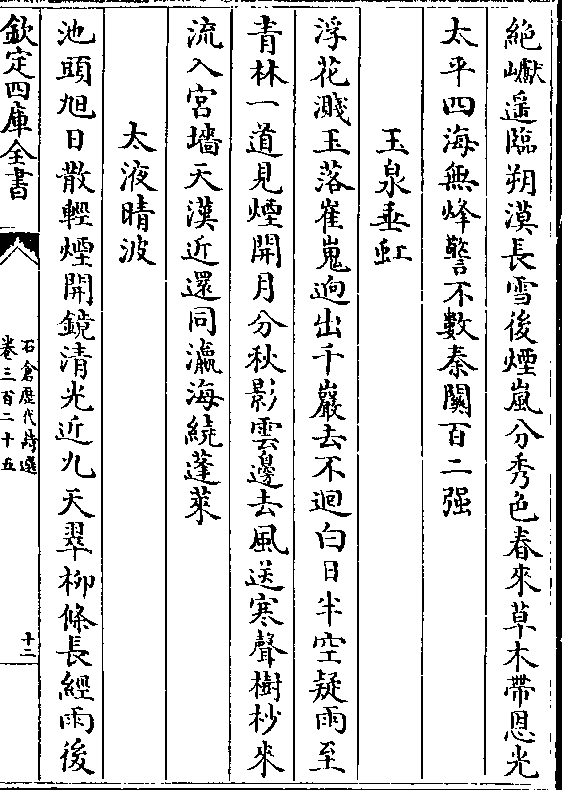 絶巘遥臨朔漠長雪後煙嵐分秀色春來草木帶恩光
太平四海無烽警不數秦關百二强
玉泉垂虹
浮花濺玉落崔嵬逈出千巖去不迴白日半空疑雨至
青林一道見煙開月分秋影雲邊去風送寒聲樹杪來
流入宮墻天漢近還同瀛海繞蓬萊
太液晴波
池頭旭日散輕煙開鏡清光近九天翠柳條長經雨後
欽定四庫全書
石倉歷代詩選
卷三百二十五
十二